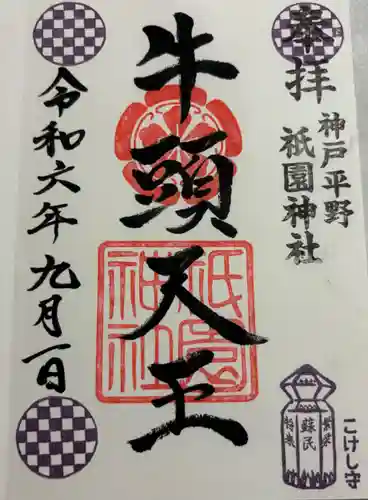 奉拝
神戸平野
祇園神社
牛頭天王
祇園
神社
令和六年九月一日
蘇民
こけし守